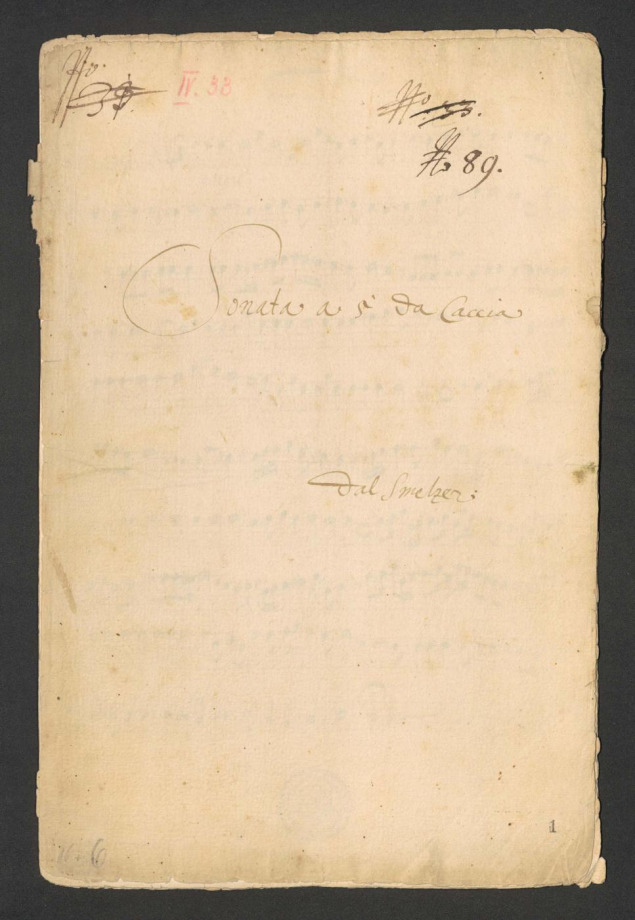 No.
IV. 33
No. 53.
No 89.
Sonata a 5 Da Caccia
Dal Smelzer:
1
6